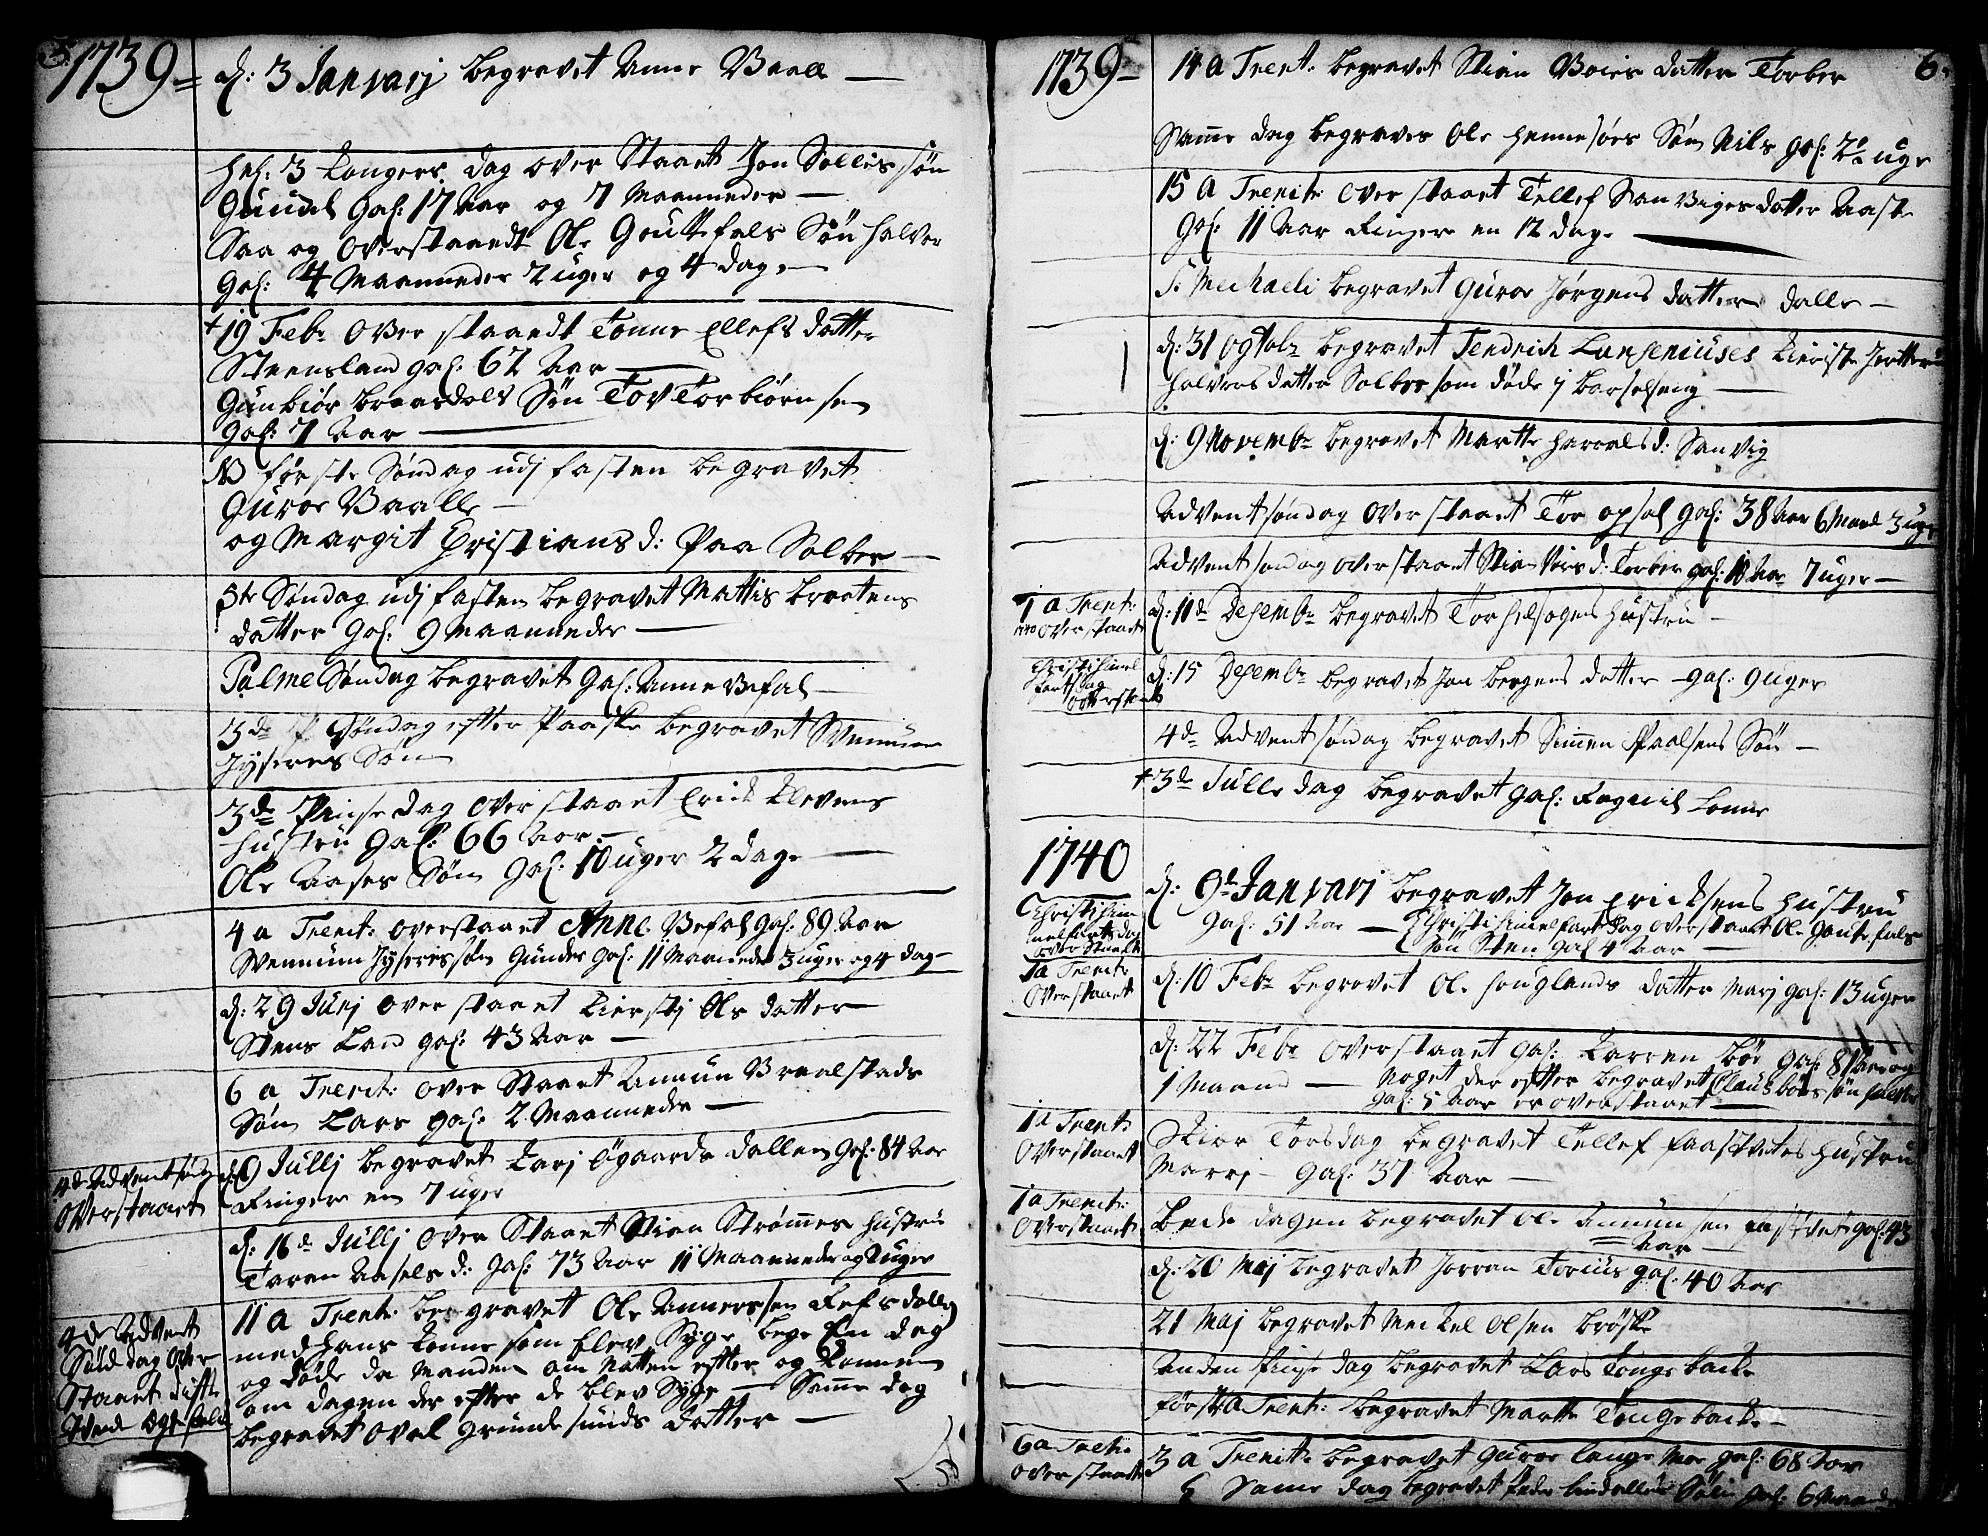 5.
1739
d: 3 Janvarj begravet Anne Vaale
Hel: 3 Kongers dag over Staaet Jon Sollies søn
Gundel gaf: 17 Aar og 7 Maanneder
Saa og overstaandt Ole Goutefals Søn Halvor
gaf: 4 Maanneder 2 uger og 4 dage
+ 19 Febr over staandt Tonne Ellefs datter
Steensland gaf: 62 Aar
Gunbiør Braasdals Søn Tov Torbiørnsen
gaf: 7 Aar
NB første Søndag udj fasten begravet
Guroe Vaalle
og Margit Christians d: paa Solber
5te Søndag udj fasten begravet Mattis Braatens
datter gaf: 9 Maanneder
Palme Søndag begravet gaf: Anne Befal
3de Søndag efter Paaske begravet Svennum
Jyseres Søn
3de Pinse dag over staaet Erick Klevens
hustru gaf: 66 Aar
Ole Aases Søn gaf: 10 uger 2 dage
4 a Trenit: overstaaet Anne Befal gaf: 89 Aar
Svennum Jyseres søn Gunder gaf: 11 Maaneder 3 uger og 4 dag
d: 29 Junj over staaet Kierstj Ols datter
Stens Land gaf: 43 Aar
6 a Trenit: over Staaet Ammun Braalstads
Søn Lars gaf: 2 Maanneder
4de Advent søndag
overstaaet
d: 9 Jullj begravet Karj Øgaards dallen gaf: 84 Aar
Ringere en 7 uger
d: 16de Jullj over Staaet Stian Strømmes hustru
Taren Axels d: gaf: 73 Aar 11 Maanneder og 2 uger
4de Advent
Sønd dag over
Staaet
11 a Trenit: begravet Ole Anners sen Refsdallen
med hans Konne som blev Syge bege En dag
og døde da Manden om Natten efter og Konnen
om dagen der efter de blev Syge — Samme dag
begravet Ovel Grundesunds datter
1739
6.
14 a Trenit: begravet Stian Boies datter Torber
Samme dag begraves Ole Hennesøes Søn Nils gaf: 20 uge
15 a Trenit: over staaet Tellef San Viges datter Aaste
gaf: 11 Aar Ringere en 12 dage
S: Mechaeli begravet Guroe Jørgens datter dalle
d: 31 ogtobr begravet Fendrich Larseniuses Kieriste Jertter
Halvors datter Solber som døde j barselseng
d: 9 Novembr begravet Martte Haraals d: Sanvig
Advent søndag over staaet Tor opsal gaf: 38 Aar 6 Maand 3 uger
Advent søndag over staaet Stian Boies d: Torber gaf: 11 Aar 7 uger
1 a Trenit:
overstaaet
d: 11de Desembr begravet Tor Helsøgens hustru
Christi himel
farts dag
overstaaet
d: 15 Desembr begravet Jon Bergens datter gaf: 9 uger
4de Advent søndag begravet Simen Poalsens Søn
+ 3de Julle dag begravet gaf: Ragnil Lonne
1740
d: 9de Janvarj begravet Jon Ericksens hustru
gaf: 51 Aar — Christi himelfart dag overstaaet Ole Goutefals
søn Sten gaf 4 Aar
Christi him
melfarts dag
over Staaet
1a Trenit:
overstaaet
d: 10 Febr begravet Ole Houglands datter Marj gaf: 13 uger
d: 22 Febr overstaaet gaf: Karren Bøe gaf: 81 Aar og
1 Maand — Noget der efter begravet Claus bøes søn Halvor
gaf: 5 Aar er overstaaet
1a Trenit:
overstaaet
Skier Torsdag begravet Tellef faastvetes hustru
Marrj — gaf: 37 Aar
1a Trenit:
overstaaet
Bede dagen begravet Ole Ammunsen fastvet gaf: 43
Aar
d: 20 Maj begravet Jorran Torius gaf: 40 Aar
21 Maj begravet Meckel Olsen Brøske
Anden Pinse dag begravet Lars Tangebacke
første a Trenit: begravet Martte Tangebacke
6 a Treni:
overstaaet
3 a Trenit: begravet Guroe Lange Moe gaf: 68 Aar
Samme dag begravet Peder Lindelles Søn gaf: 6 Maaned